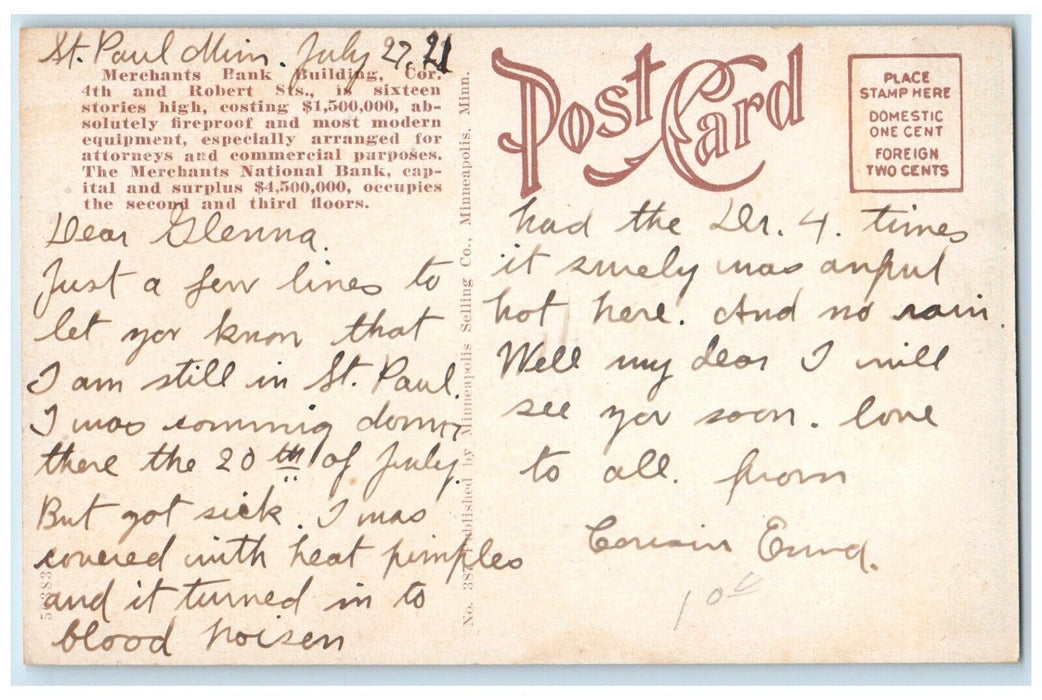 St. Paul Minn. July 27, 21
Merchants Bank Building, Cor.
4th and Robert Sts., is sixteen
stories high, costing $1,500,000, ab-
solutely fireproof and most modern
equipment, especially arranged for
attorneys and commercial purposes.
The Merchants National Bank, cap-
ital and surplus $4,500,000, occupies
the second and third floors.
Dear Glenna.
Just a few lines to
let yor know that
I am still in St. Paul.
I was comming down
there the 20th of July.
But got sick. I was
covered with heat pimples
and it turned in to
blood poisen
No. 387 Published by Minneapolis Selling Co., Minneapolis, Minn.
Post Card
PLACE
STAMP HERE
DOMESTIC
ONE CENT
FOREIGN
TWO CENTS
had the Dr. 4. times
it surely was anful
hot here. And no rain.
Well my dear I will
see yor soon. love
to all. from
Cousin